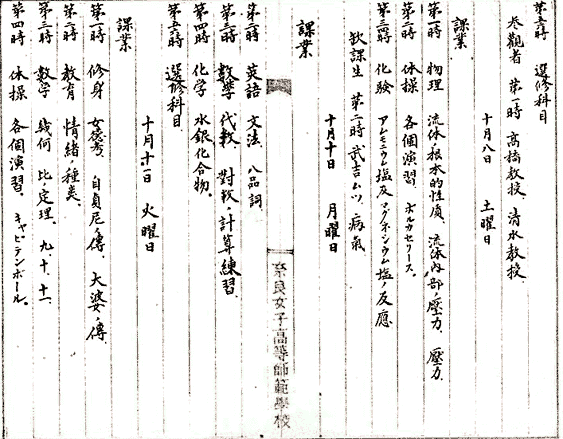 第五時 選修科目
参觀者 第一時 高橋教授 清水教授
十月八日 土曜日
課業
第一時 物理 流体ノ根本的性质 流体内部ノ壓力 壓力
第二時 体操 各個演習 ポルカセリース。
第三四時 化験 アムモニウム塩及マグネシウム塩ノ反應
欤課生 第二時 武吉ムツ 病氣
十月十日 月曜日
課業
第一時 英語 文法 八品詞
第二時 数學 代数、對数ノ計算練習
第四時 化学 水銀化合物。
第五時 選修科目
十月十一日 火曜日
課業
第一時 修身 女徳考、自貞尼ノ傳、大婆ノ傳
第二時 教育 情緒ノ種类。
第三時 数学 幾何 比ノ定理。九、十、十一
第四時 体操 各個演習、キャプテンボール。
奈良女子高等師範學校